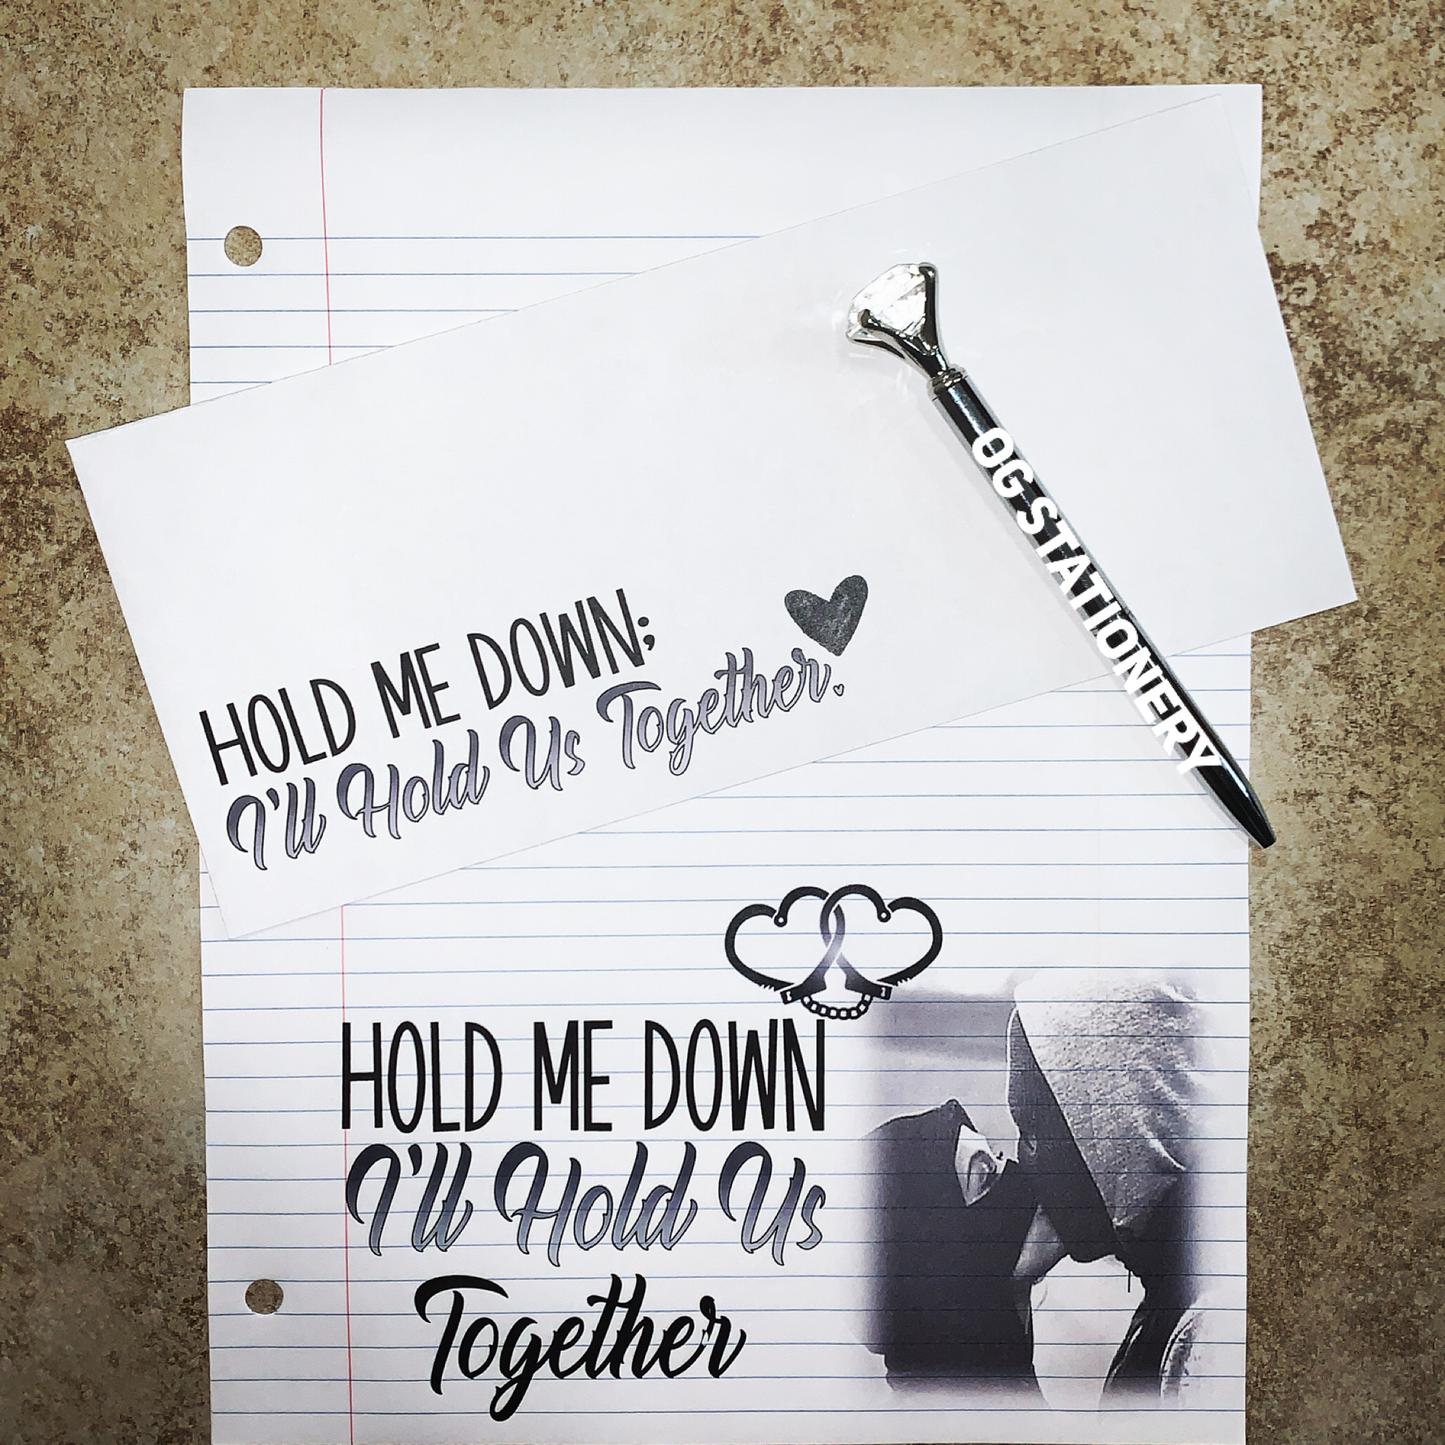 HOLD ME DOWN;
I'll Hold Us Together.
OG STATIONERY
HOLD ME DOWN
I'll Hold Us
Together